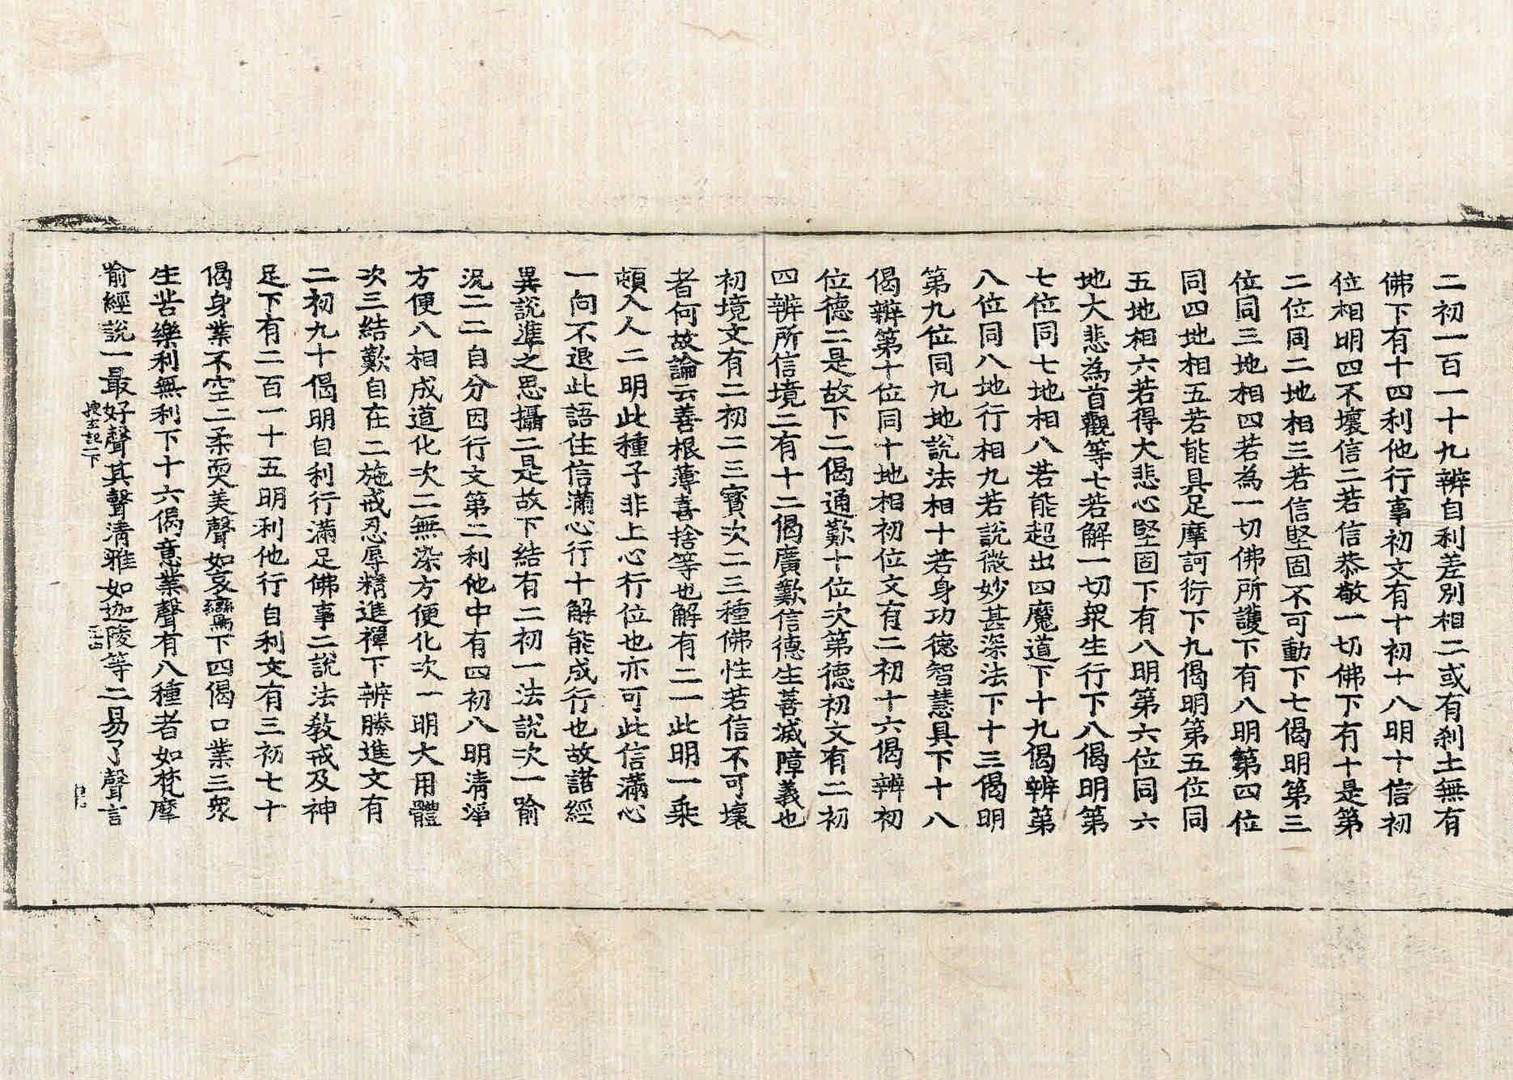 二初一百一十九辨自利差別相二或有刹土無有
佛下有十四利他行事初文有十初十八明十信初
位相明四不壞信二若信恭敬一切佛下有十是第
二位同二地相三若信堅固不可動下七偈明第三
位同三地相四若為一切佛所護下有八明第四位
同四地相五若能具足摩訶衍下九偈明第五位同
五地相六若得大悲心堅固下有八明第六位同六
地大悲為首觀等七若解一切衆生行下八偈明第
七位同七地相八若能超出四魔道下十九偈辨第
八位同八地行相九若說微妙甚深法下十三偈明
第九位同九地說法相十若身功德智慧具下十八
偈辨第十位同十地相初位文有二初十六偈辨初
位德二是故下二偈通歎十位次第德初文有二初
四辨所信境二有十二偈廣歎信德生善滅障義也
初境文有二初二三寶次二三種佛性若信不可壞
者何故論云善根薄喜捨等也解有二一此明一乘
頓入人二明此種子非上心行位也亦可此信滿心
一向不退此語住信滿心行十解能成行也故諸經
異說準之思攝二是故下結有二初一法說次一喻
況二二自分因行文第二利他中有四初八明清淨
方便八相成道化次二無染方便化次一明大用體
次三結歎自在二施戒忍辱精進禪下辨勝進文有
二初九十偈明自利行滿足佛事二說法教戒及神
足下有二百一十五明利他行自利文有三初七十
偈身業不空二柔耎美聲如哀鸞下四偈口業三衆
生苦樂利無利下十六偈意業聲有八種者如梵摩
喻經說一最好聲其聲清雅如迦陵等二易了聲言